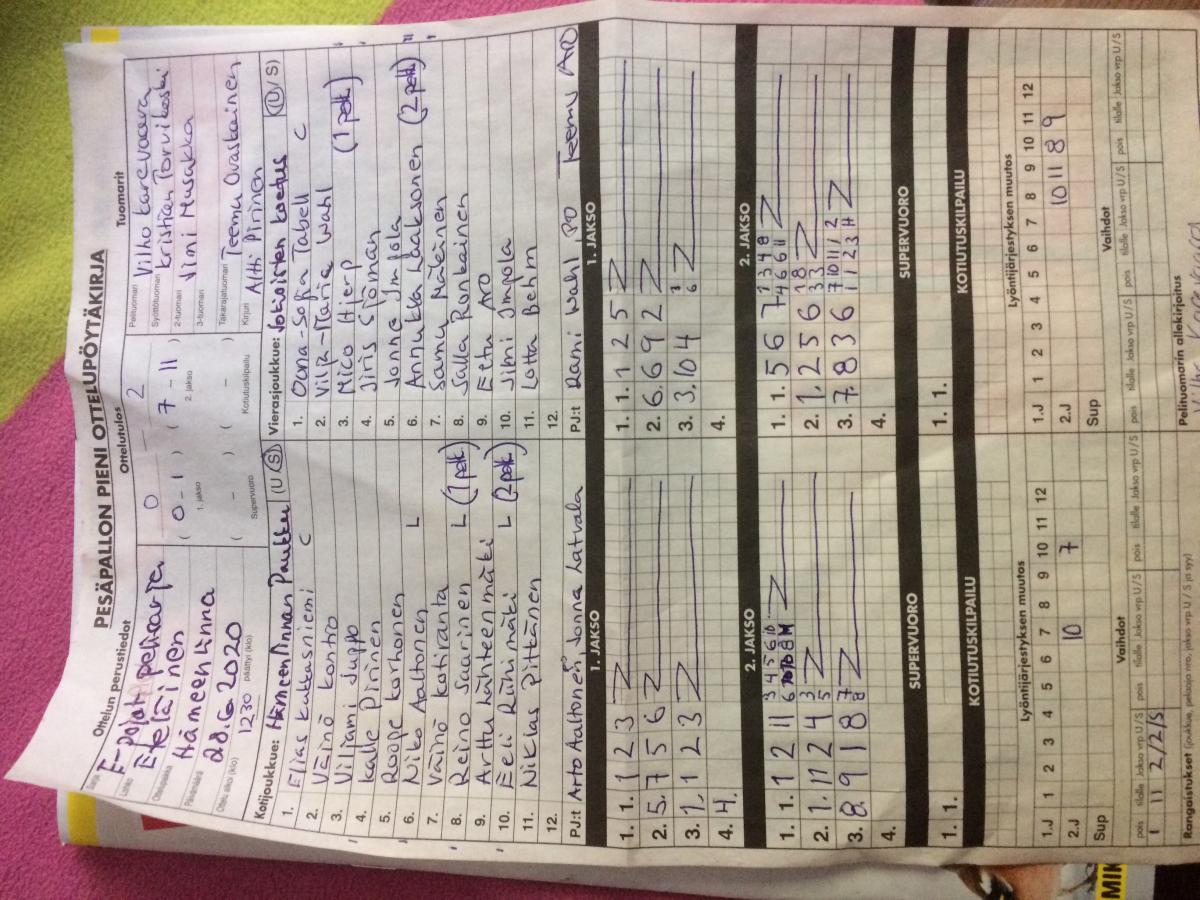 PESÄPALLON PIENI OTTELUPÖYTÄKIRJA
Ottelun perustiedot
Ottelutulos
Tuomarit
Sarja
F-pojat
Lohko
Eteläinen
Ottelupaikka
Hämeenlinna
Päivämäärä
28.6.2020
Ottelu alkoi (klo) 1230 päättyi (klo)
0 — 2
( 0 - 1 ) ( 7 - 11 )
1. jakso 2. jakso
( - ) ( - )
Supervuoro Kotiutuskilpailu
Pelituomari Vilho
Syöttötuomari Kristian Torvikoski
2-tuomari Jimi Musakka
3-tuomari
Takarajatuomari Teemu Ovaskainen
Kirjuri Altti Piirinen
Kotijoukkue: Hämeenlinnan Paukku (U / S)
1. Elias C
2. Väinö Kontro
3. Viljami Juppo
4. Kalle Pirinen
5. Roope Korhonen
6. Niko Aaltonen L
7. Väinö Kotiranta
8. Reino Saarinen L (1 palk.)
9. Arttu Lähteenmäki
10. Eeli Riihimäki L (2 palk)
11. Niklas Pittänen
12.
PJ:t Arto Aaltonen, Jonna Latvala
Vierasjoukkue: Jokioisten Koetus (U / S)
1. Oona-Sofia Tabell C
2. Vilja-Maria Wahl
3. Mico Hierp (1 palk.)
4. Jiris Sföman
5. Jonne Impola
6. Annukka Laaksonen (2 palk.)
7. Samu Mäkinen
8. Salla Runkainen
9. Eetu Aro
10. Ilmi Impola
11. Lotta Behm
12.
PJ:t Rami Wahl PO Teemu ARO
1. JAKSO
1. 1. 1 2 3
2. 5. 7 5 6
3. 1. 1 2 3
4. 4.
1. JAKSO
1. 1. 1 2 5
2. 6. 6 9 2
3. 3. 10 4
4.
2. JAKSO
1. 1. 1 2 11
2. 1. 11 2 4
3. 8. 9 1 8
4.
2. JAKSO
1. 1. 5 6 7
2. 1. 2 5 6
3. 7. 8 3 6
4.
SUPERVUORO
1. 1.
SUPERVUORO
1. 1.
KOTIUTUSKILPAILU
KOTIUTUSKILPAILU
Lyöntijärjestyksen muutos
1 2 3 4 5 6 7 8 9 10 11 12
1.J
2.J 10 7
Sup
Lyöntijärjestyksen muutos
1 2 3 4 5 6 7 8 9 10 11 12
1.J
2.J 10 11 8 9
Sup
Vaihdot
pois tilalle Jakso vrp U/S pois tilalle Jakso vrp U/S
1 11 2/2/S
Vaihdot
pois tilalle Jakso vrp U/S pois tilalle Jakso vrp U/S
Rangaistukset (joukkue, pelaaja nro, jakso vrp U / S ja syy)
Pelituomarin allekirjoitus
MIK